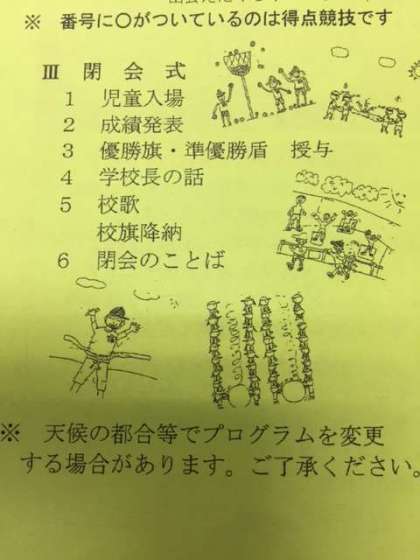 ※ 番号に○がついているのは得点競技です
Ⅲ 閉会式
1 児童入場
2 成績発表
3 優勝旗・準優勝盾 授与
4 学校長の話
5 校歌
校旗降納
6 閉会のことば
※ 天候の都合等でプログラムを変更
する場合があります。ご了承ください。